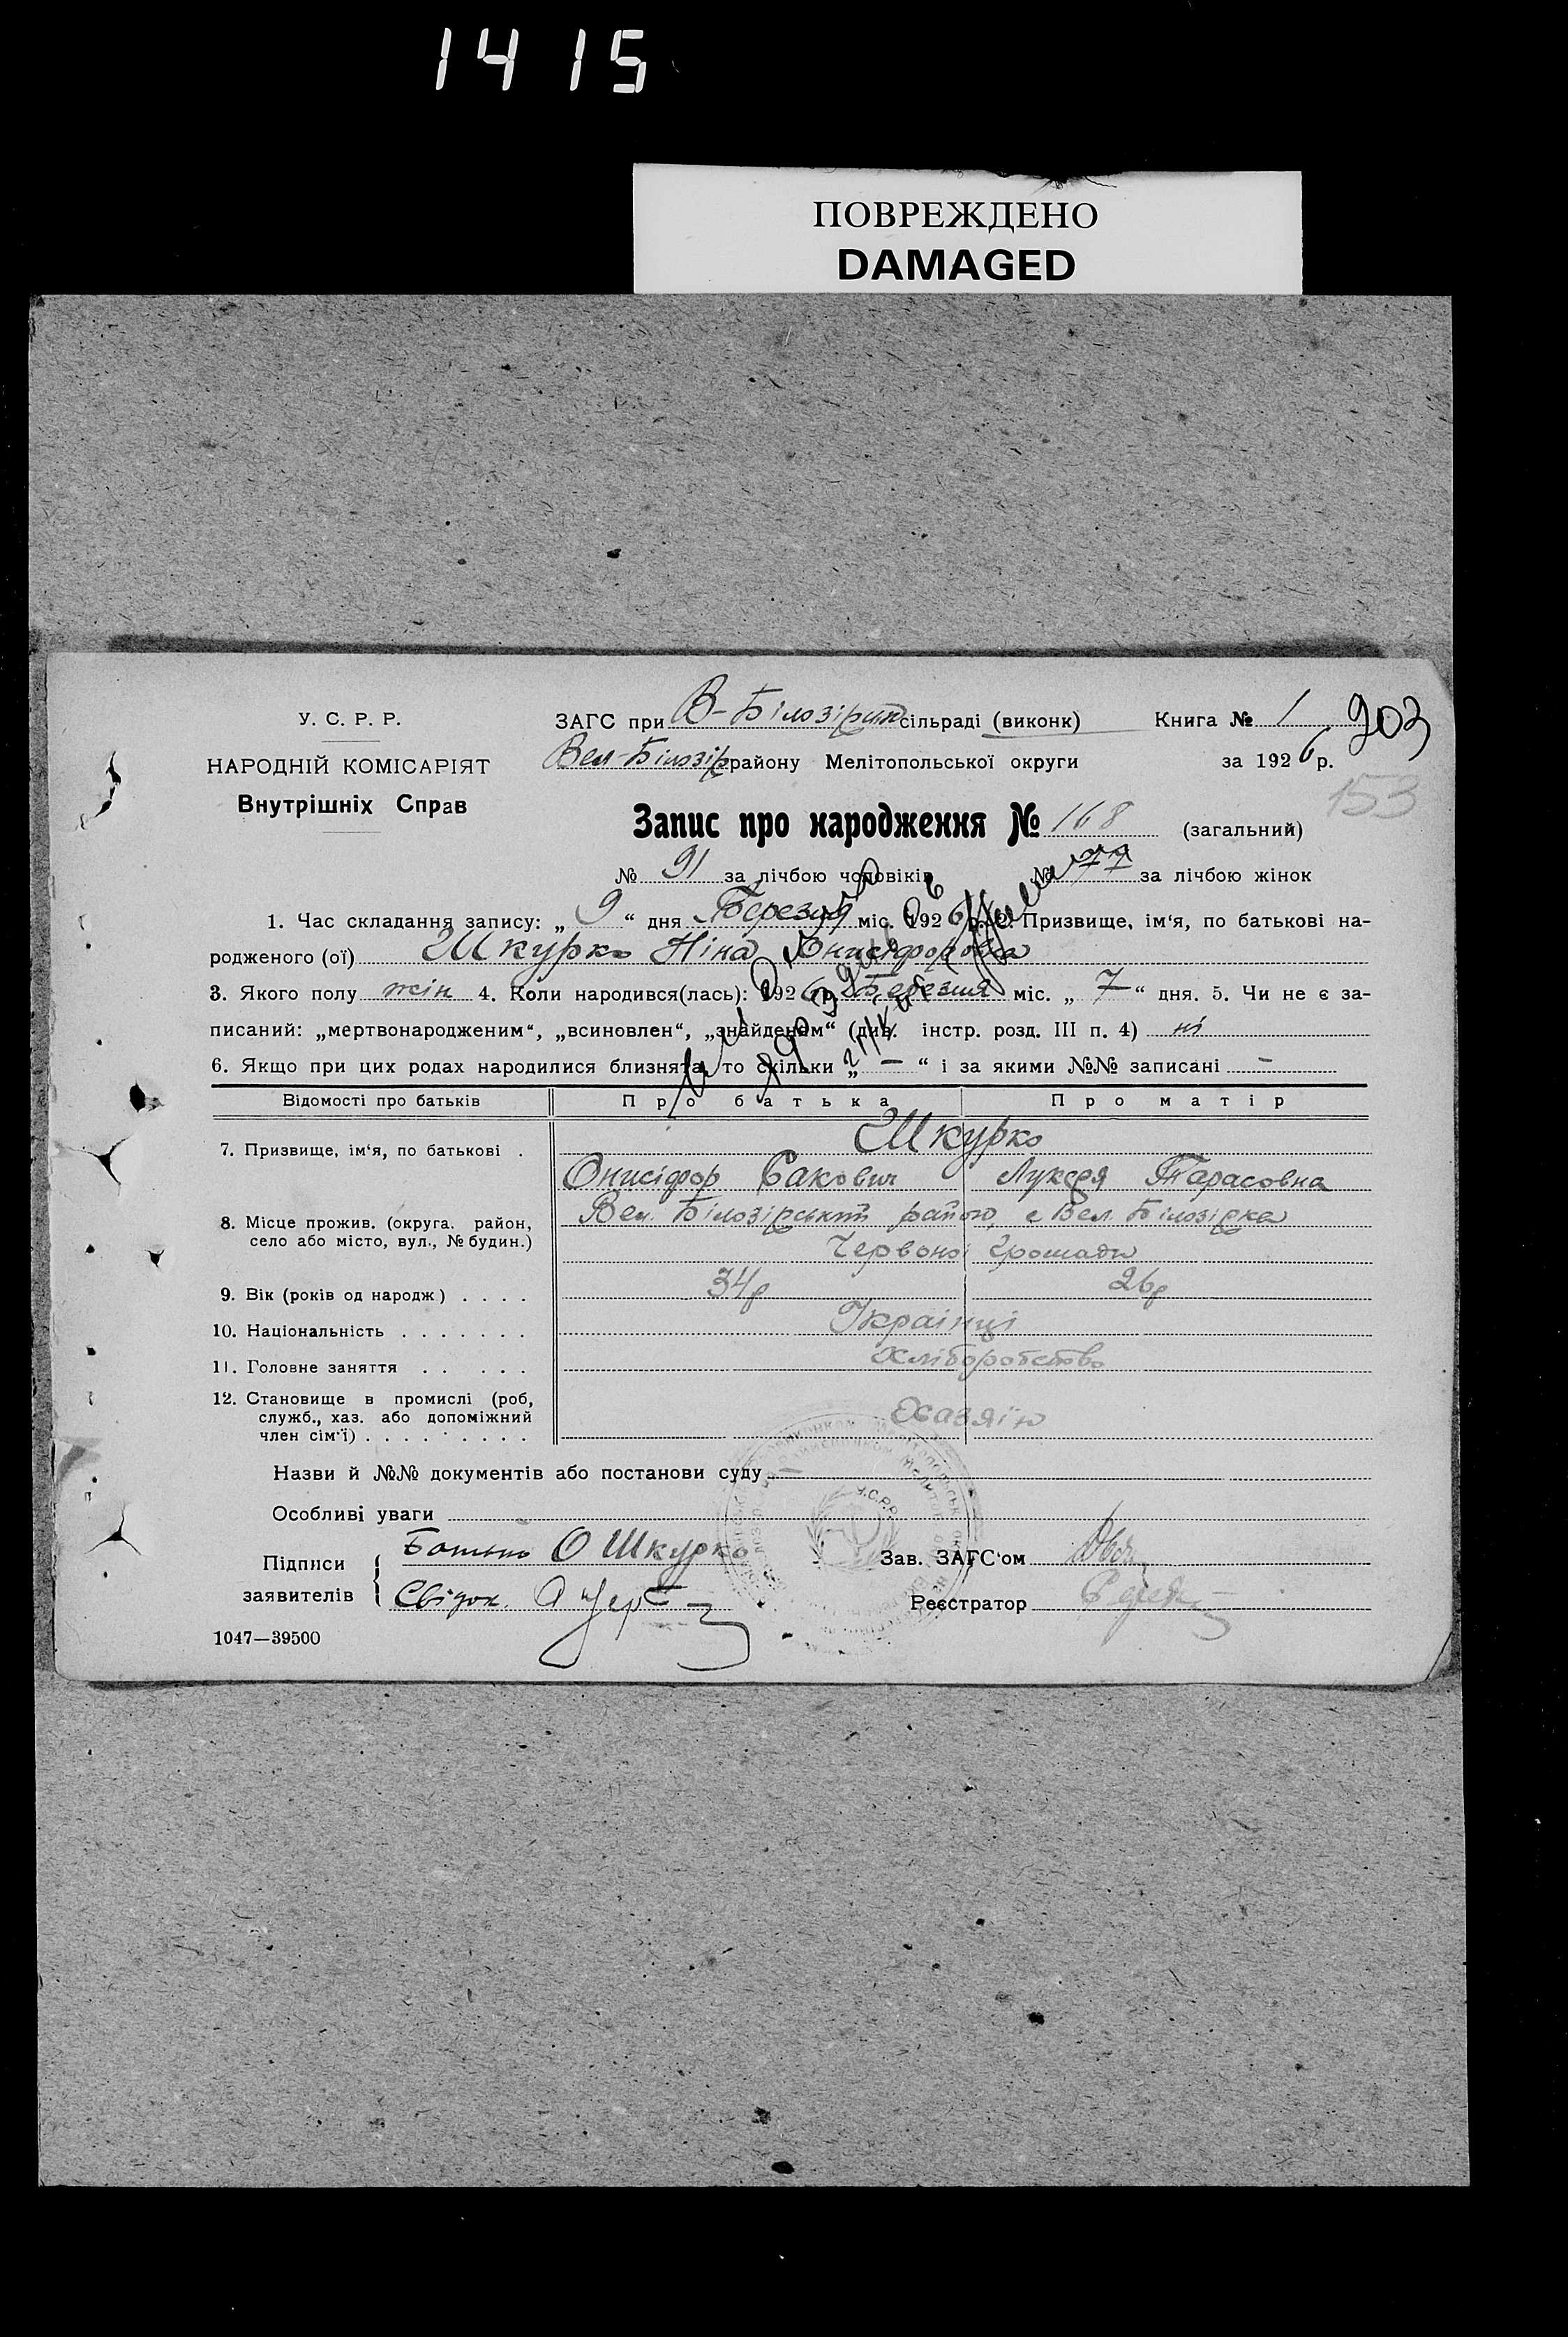 1415
ПОВРЕЖДЕНО
DAMAGED
У. С. Р. Р.
НАРОДНІЙ КОМІСАРІЯТ
Внутрішніх Справ
ЗАГС при В-Білозірськ сільраді (виконк) Книга № 1 903
Вел-Білозір району Мелітопольської округи за 1926 р.
153
Запис про народження № 168 (загальний)
№ 91 за лічбою чоловіків № 77 за лічбою жінок
1. Час складання запису: „ 9 “ дня Березня міс. 1926 р. 2. Призвище, ім‘я, по батькові на-
родженого (ої) Шкурко Ніна Онисіфоровна
3. Якого полу жін 4. Коли народився(лась): 1926 р. Березня міс. „ 7 “ дня. 5. Чи не є за-
писаний: „мертвонародженим“, „всиновлен“, „знайденим“ (див. інстр. розд. III п. 4) ні
6. Якщо при цих родах народилися близнята, то скільки „ — “ і за якими №№ записані —
Відомості про батьків Про батька Про матір
7. Призвище, ім‘я, по батькові . Шкурко
Онисіфор Сакович Лукеря Тарасовна
8. Місце прожив. (округа. район, село або місто, вул., № будин.) Вел. Білозірського району, с Вел. Білозірка
Червоної Громади
9. Вік (років од народж) . . . . 34р 26р
10. Національність . . . . . . . Українці
11. Головне заняття . . . . . Хліборобство
12. Становище в промислі (роб,
служб., хаз. або допоміжний
член сім‘ї) . . . . . . . . . Хазяїн
Назви й №№ документів або постанови суду —
Особливі уваги
Підписи заявителів Батько О Шкурко
Свідок.
Зав. ЗАГС‘ом
Реєстратор
У.С.Р.Р.
1047—39500